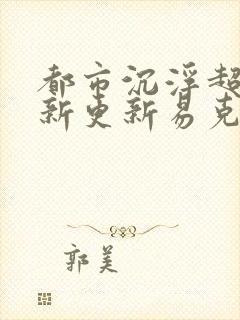 都市沉浮超
新更新易克
郭美